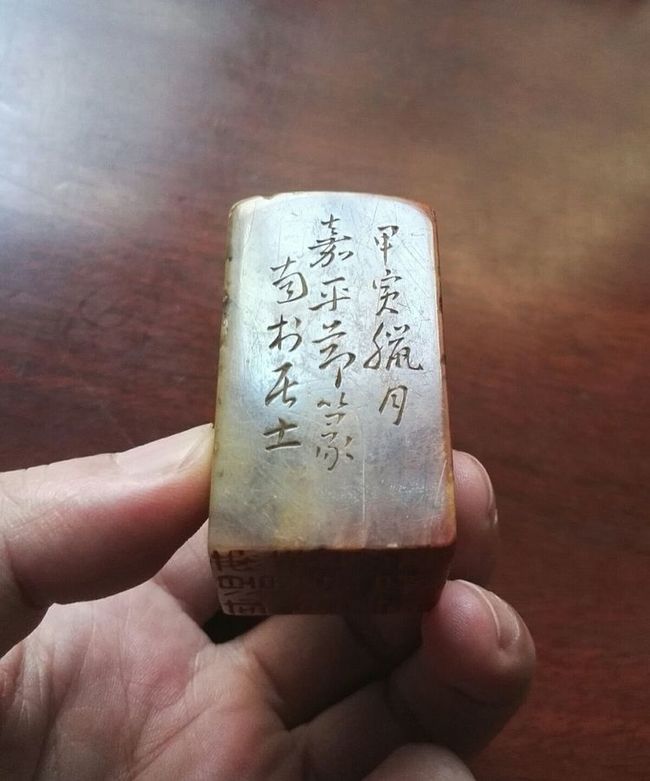 甲寅臘月
嘉平節篆
南村居士